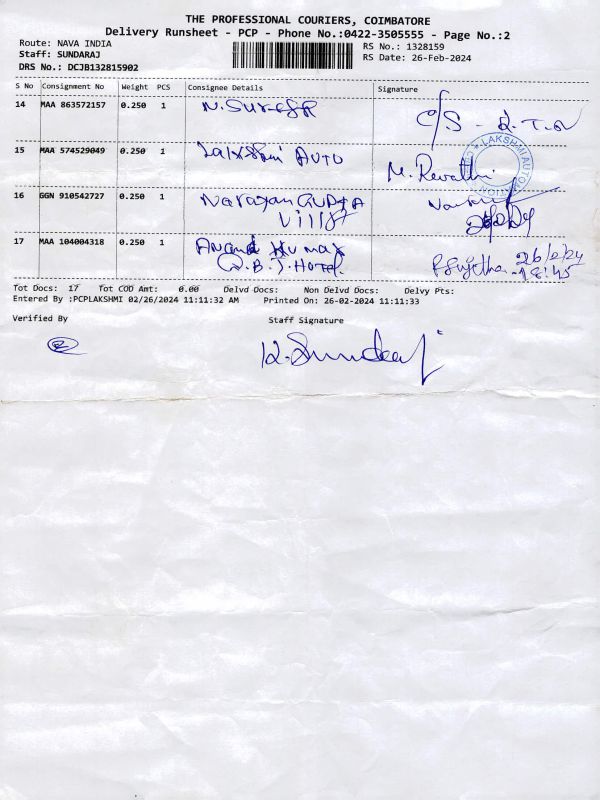 THE PROFESSIONAL COURIERS, COIMBATORE
Delivery Runsheet - PCP - Phone No.:0422-3505555 - Page No.:2
Route: NAVA INDIA
Staff: SUNDARAJ
DRS No.: DCJB132815902
RS No.: 1328159
RS Date: 26-Feb-2024
S No Consignment No Weight PCS Consignee Details Signature
14 MAA 863572157 0.250 1 N. SURESH C/S -
15 MAA 574529049 0.250 1 Lakshmi AUTO M. Revathi
LAKSHMI AUTOM
16 GGN 910542727 0.250 1 Narayan GUPTA
17 MAA 104004318 0.250 1 Anand Kumar
HOTEL. 26/2/24
18:45
Tot Docs: 17 Tot COD Amt: 0.00 Delvd Docs: Non Delvd Docs: Delvy Pts:
Entered By :PCPLAKSHMI 02/26/2024 11:11:32 AM Printed On: 26-02-2024 11:11:33
Verified By Staff Signature
K. Sundaraj